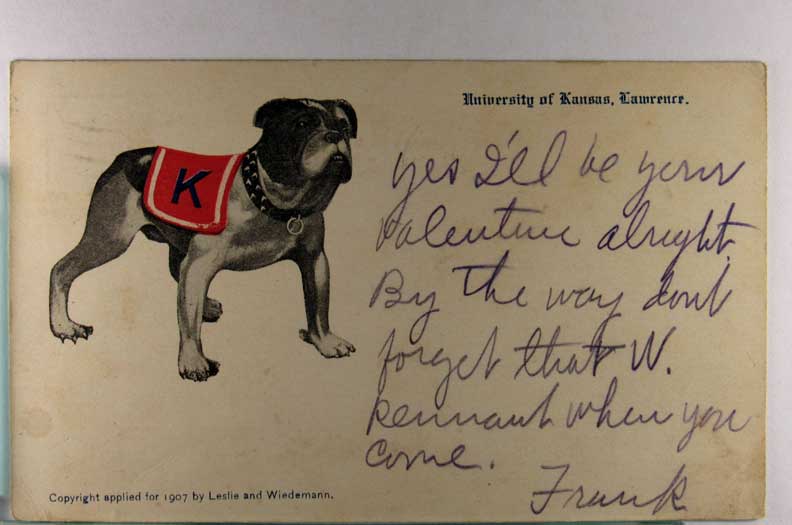 University of Kansas, Lawrence.
K
yes I'll be your
Valentine alright.
By the way don't
forget that W.
Pennant when you
come.
Frank
Copyright applied for 1907 by Leslie and Wiedemann.